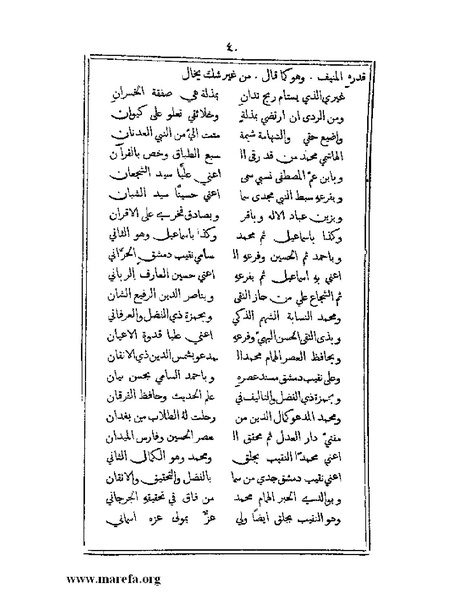 ٤٠
قدره المنيف . وهو كما قال . من غير شك يخال
غيري الذي يستام ربح تدان بمذلة هي صفقة الخسران
ومن الردى ان ارتضي بمذلة وخلائقي تعلو على كيوان
واضيع حقي والشهامة شيمة متت اليّ من النبي العدنان
الهاشمي محمد من قد رقى ال سبع الطباق وخص بالقرآن
وبابن عم المصطفى نسبي سمى اعني عليًا سيد الشجعان
وبفرعه سبط النبي مجدي سما اعني حسينًا سيد الشبان
وبزين عباد الاله وباقر وبصادق فخري على الاقران
وكذا باسماعيل ثم محمد وكذا باسماعيل وهو الثاني
وباحمد ثم الحسين وفرعه ال سامي نقيب دمشق الحرّاني
اعني به اسماعيل ثم بفرعه اعني حسين العارف الرباني
ثم الشجاع علي من حاز التقى وبناصر الدين الرفيع الشان
ومحمد النسابة الشهم الذكي وبحمزة ذي الفضل والعرفان
وبذي التقى الحسن البهيّ وفرعه اعني عليا قدوة الاعيان
وبحافظ العصر الهام محمد ال مدعو بشمس الدين ذي الاتقان
وعلى نقيب دمشق مسند عصره وباحمد السامي بحسن بيان
وبحمزة ذي الفضل والتاليف في علم الحديث وحافظ الفرقان
ومحمد المدعو كمال الدين من رحلت له الطلاب من بغدان
مفتيّ دار العدل ثم محقق ال عصر الحسين وفارس الميدان
اعني محمدًا النقيب بجلق ومحمد وهو الكمالي الثاني
اعني نقيب دمشق جدي من سما بالفضل والتحقيق والاتقان
وبوالدي الحبر الهام محمد من فاق في تحقيقه الجرجاني
وهو النقيب بجلق ايضًا ولي عزٌ بمولى عزه اسماني
www.marefa.org